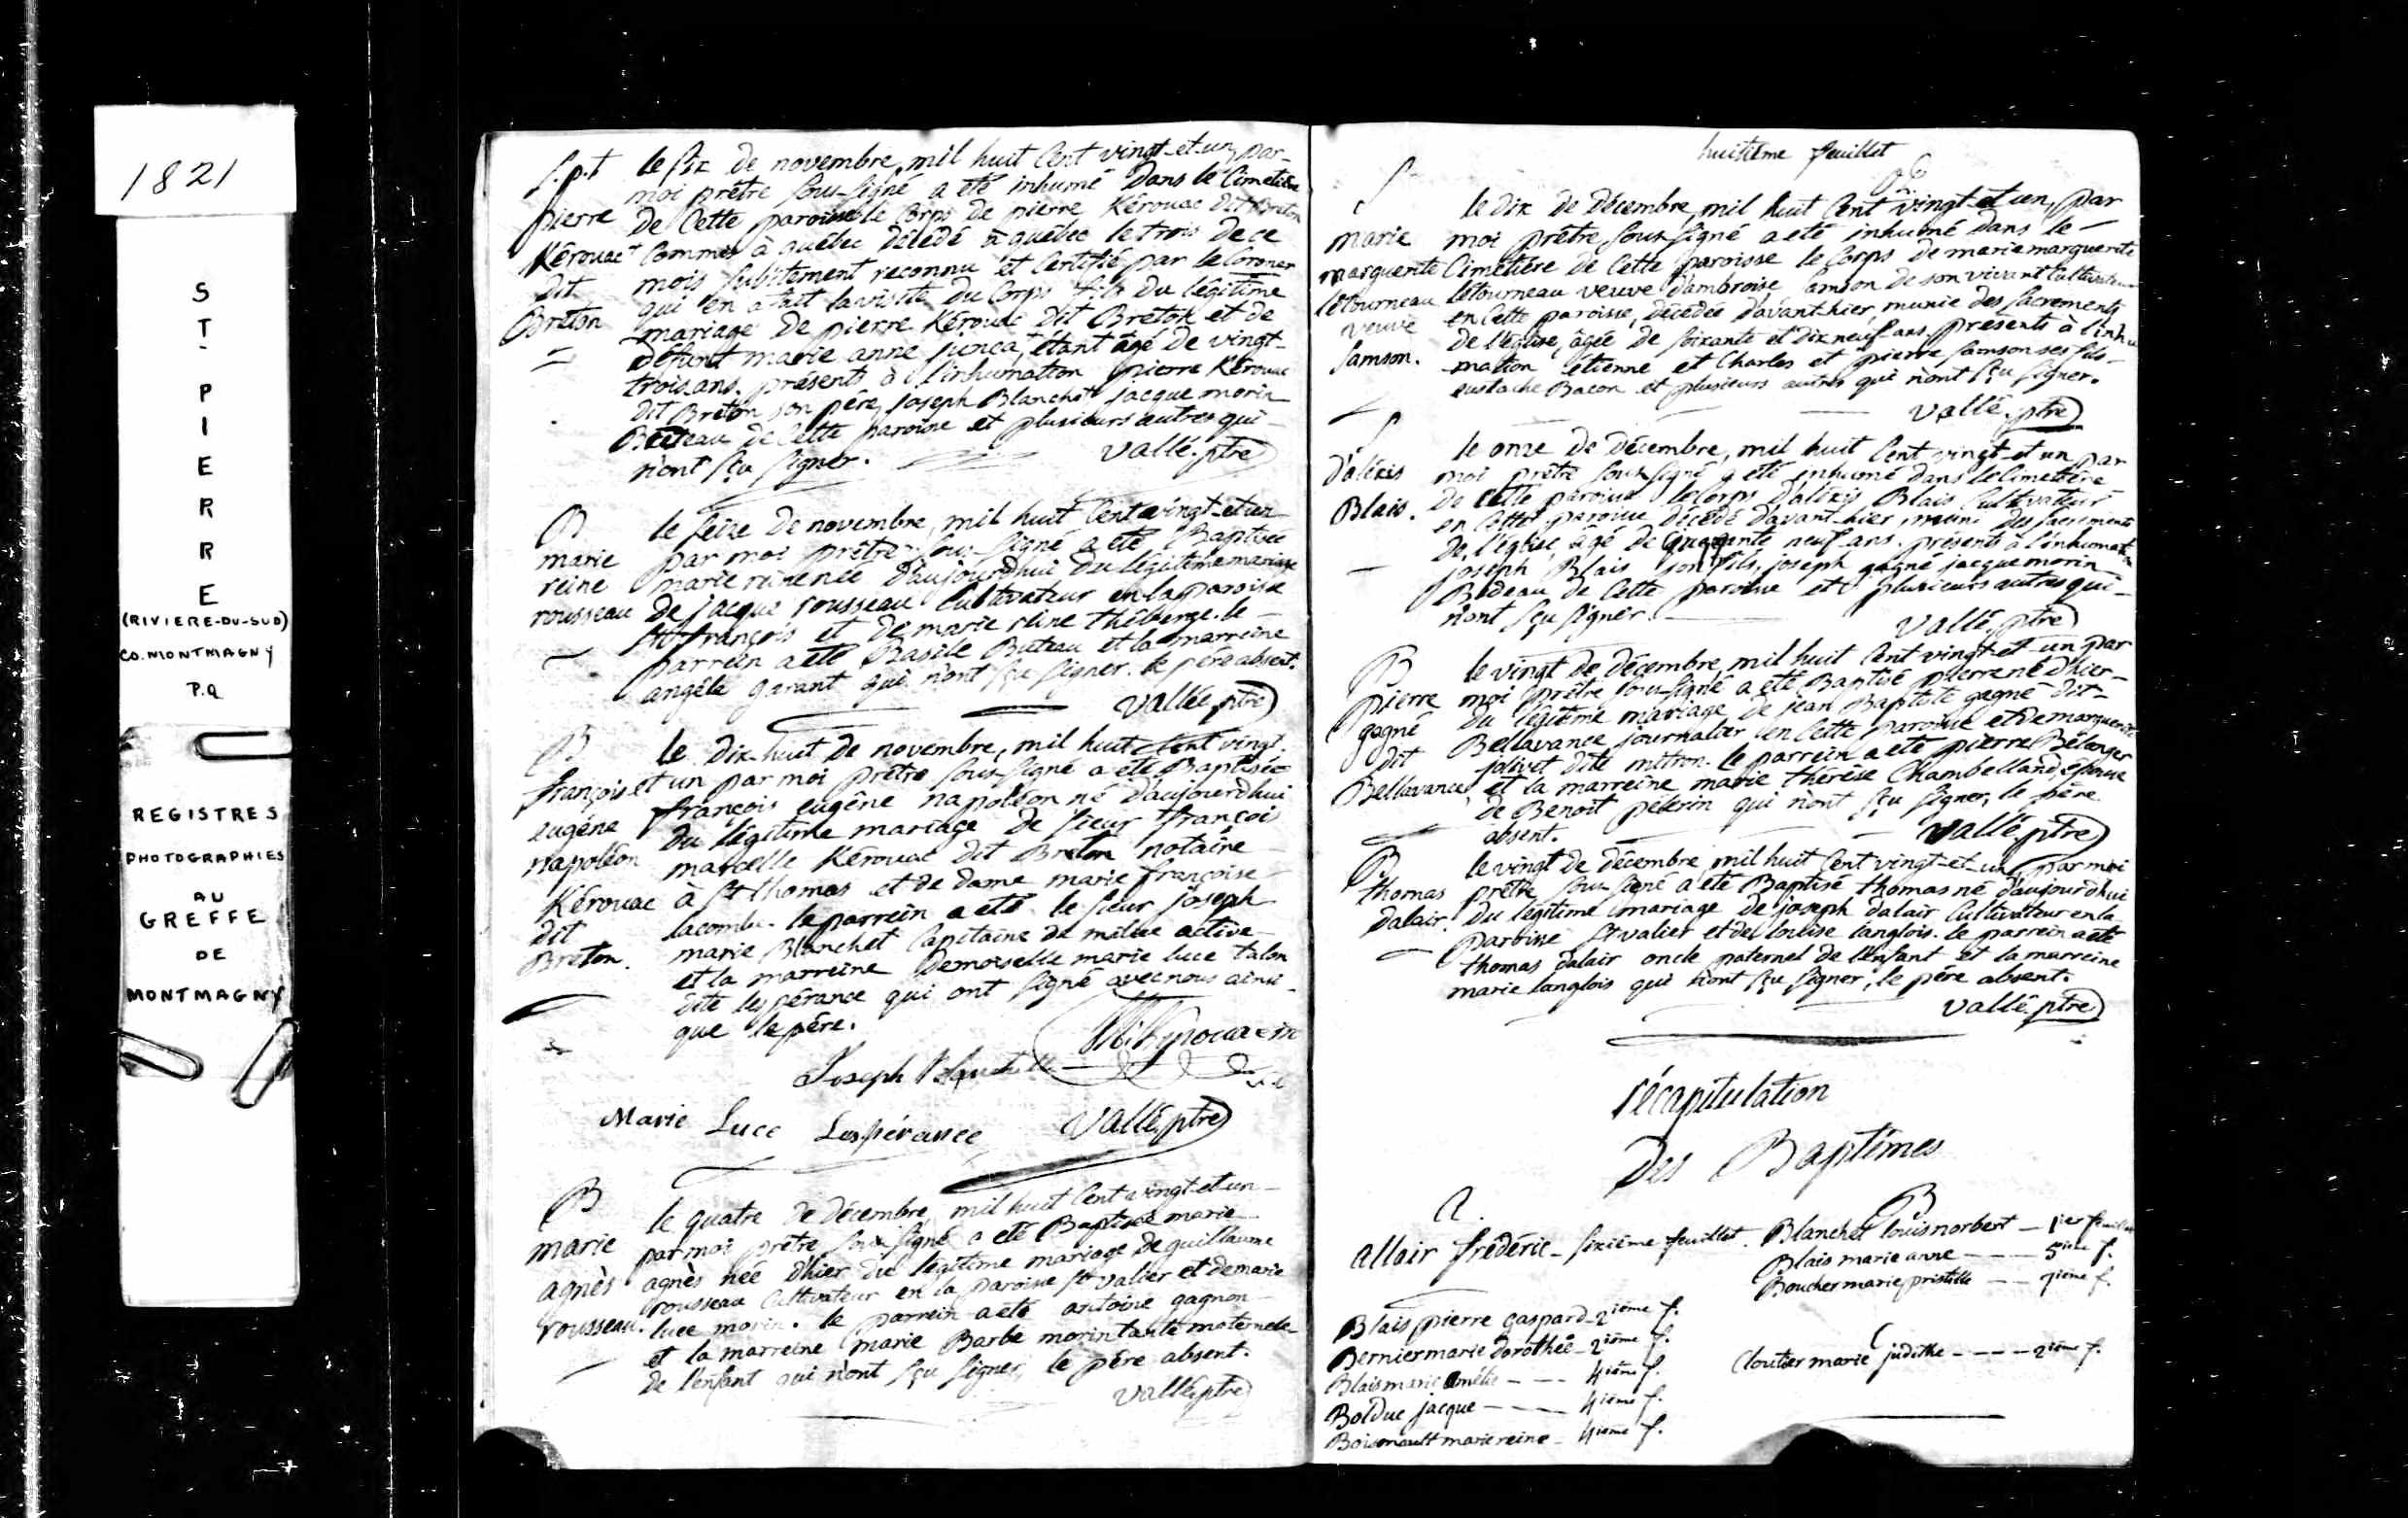 1821
ST. PIERRE
(RIVIERE-DU-SUD)
CO. MONTMAGNY
P.Q
REGISTRES
PHOTOGRAPHIES
AU
GREFFE
DE
MONTMAGNY
S.p.t
pierre
Kérouac
dit
Breton
le six de novembre, mil huit Cent vingt-et-un, par-
moi prêtre sous-signé a été inhumé dans le Cimetière
de Cette paroisse le Corps de pierre Kérouac dit Breton
Commis à québec décédé à québec le trois de ce
mois subitement reconnu et Certifié par le Coroner
qui en a fait la visite du Corps fils du légitime
mariage de pierre Kérouac dit Breton et de
défunt marie anne junca, étant âgé de vingt-
trois ans. présents à l'inhumation pierre Kérouac
dit Breton son père, joseph Blanchet jacque morin
de Cette paroisse et plusieurs autres qui
n'ont sçu signer.
vallé. ptre
B
marie
reine
rousseau
le seize de novembre, mil huit Cent vingt-et-un
par moi prêtre sous-signé a été Baptisée
marie reine née d'aujourdhui du légitime mariage
de jacque rousseau Cultivateur en la paroisse
St françois et de marie reine théberge. le
parrein a été Basile Buteau et la marreine
angèle garant qui n'ont sçu signer. le père absent.
vallée ptre
B.
françois
eugéne
napoléon
Kérouac
dit
Breton.
le dix-huit de novembre, mil huit Cent vingt-
et un par moi prêtre sous-signé a été Baptisée
françois eugène napoléon né d'aujourdhui
du légitime mariage de sieur françois
marcelle Kérouac dit Breton notaire
à St thomas et de dame marie françoise
lacombe. le parrein a été le sieur joseph
marie Blanchet Capitaine de milice active
et la marreine Demoiselle marie luce talon
dite lespérance qui ont signé avec nous ainsi-
que le père.
Joseph
Marie Luce Lespérance
vallé. ptre
B
marie
agnès
rousseau.
le quatre de décembre, mil huit Cent vingt-et-un-
par moi prêtre sous-signé a été Baptisée marie
agnès née d'hier du légitime mariage de guillaume
rousseau Cultivateur en la paroisse St valier et de marie
luce morin. le parrein a été antoine gagnon
et la marreine marie Barbe morin tante maternele
de l'enfant qui n'ont sçu signer, le père absent.
vallé. ptre
huitième feuillet
S
marie
marguerite
létourneau
veuve
samson.
le dix de décembre, mil huit Cent vingt et un, par
moi prêtre sous-signé a été inhumé dans le-
Cimetière de Cette paroisse le Corps de marie marguerite
létourneau veuve d'ambroise samson de son vivant Cultivateur
en Cette paroisse, décédée d'avant hier, munie des sacrements
de l'église, âgée de soixante et dix neuf ans. présents à l'inhu
mation étienne et Charles et pierre samson ses fils
eustache Bacon et plusieurs autres qui n'ont sçu signer.
vallé. ptre
S
d'aléxis
Blais.
le onze de décembre, mil huit Cent vingt-et un par
moi prêtre sous-signé a été inhumé dans le Cimetière
de Cette paroisse le Corps d'aléxis Blais Cultivateur
en Cette paroisse décédé d'avant-hier, muni des sacrements
de l'église, âgé de quarante neuf ans. présents à l'inhumation
joseph Blais son fils, joseph gagné jacque morin
Bedeau de Cette paroisse et plusieurs autres qui-
n'ont sçu signer.
vallé. ptre
B
pierre
gagné
dit
Bellavance
le vingt de décembre, mil huit Cent vingt-et-un par
moi prêtre sous-signé a été Baptisé pierre né d'hier-
du légitime mariage de jean Baptiste gagné dit-
Bellavance journalier en Cette paroisse et de marguerite
jolivet dite mitron. le parrein a été pierre Bélanger
et la marreine marie thérèse Chambelland, épouse
de Benoit pélerin qui n'ont sçu signer, le père
absent.
vallé ptre
B.
thomas
dalair.
le vingt de décembre, mil huit Cent vingt-et-un, par moi
prêtre sous-signé a été Baptisé thomas né d'aujourdhui
du légitime mariage de joseph dalair Cultivateur en la
paroisse St valier et de louise langlois. le parrein a été
thomas dalair oncle paternel de l'enfant et la marreine
marie langlois qui n'ont sçu signer, le père absent.
vallé. ptre
récapitulation
des Baptêmes
A.
allair frédéric - sixième feuillet.
Blais pierre gaspard - 2ième f.
Bernier marie dorothée - 2ième f.
Blais marie amélie - - - 4ième f.
Bolduc jacque - - - 4ième f.
Boisonault marie reine - 4ième f.
B
Blanchet louis norbert - 1er feuillet
Blais marie anne - - - 5ième f.
Boucher marie pristille - - 7ième f.
C
Cloutier marie judithe - - - - 2ième f.